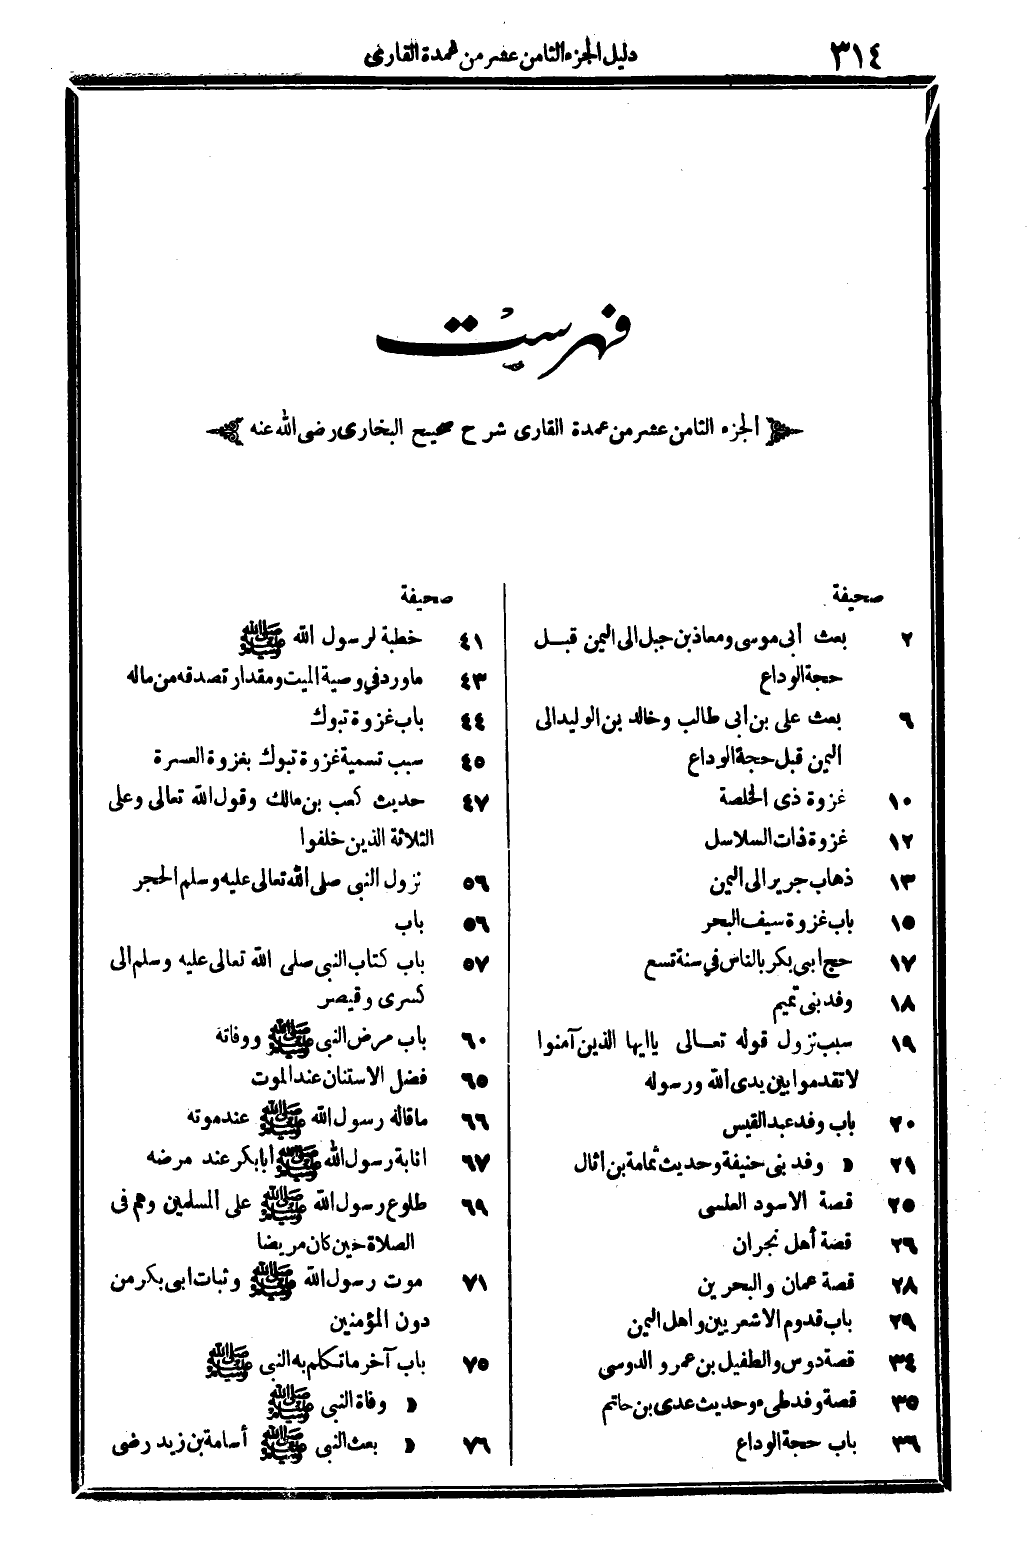 ٣١٤
دليل الجزء الثامن عشر من عمدة القارى
فهرست
الجزء الثامن عشر من عمدة القارى شرح صحيح البخارى رضى الله عنه
صحيفة
٢ بعث أبى موسى ومعاذ بن جبل الى اليمن قبل
حجة الوداع
٦ بعث على بن أبى طالب وخالد بن الوليد الى
اليمن قبل حجة الوداع
١٠ غزوة ذى الخلصة
١٢ غزوة ذات السلاسل
١٣ ذهاب جرير الى اليمن
١٥ باب غزوة سيف البحر
١٧ حج ابى بكر بالناس في سنة تسع
١٨ وفد بنى تميم
١٩ سبب نزول قوله تعالى ياايها الذين آمنوا
لا تقدموا بين يدى الله ورسوله
٢٠ باب وفد عبد القيس
٢١ » وفد بنى حنيفة وحديث ثمامة بن أثال
٢٥ قصة الاسود العلسى
٢٦ قصة أهل نجران
٢٨ قصة عمان والبحرين
٢٩ باب قدوم الاشعريين واهل اليمن
٣٤ قصة دوس والطفيل بن عمرو الدوسى
٣٥ قصة وفد طىء وحديث عدى بن حاتم
٣٦ باب حجة الوداع
صحيفة
٤١ خطبة لرسول الله ﷺ
٤٣ ماورد في وصية الميت ومقدار تصدقه من ماله
٤٤ باب غزوة تبوك
٤٥ سبب تسمية غزوة تبوك بغزوة العسرة
٤٧ حديث كعب بن مالك وقول الله تعالى وعلى
الثلاثة الذين خلفوا
٥٦ نزول النبى صلى الله تعالى عليه وسلم الحجر
٥٦ باب
٥٧ باب كتاب النبى صلى الله تعالى عليه وسلم الى
كسرى وقيصر
٦٠ باب مرض النبى ﷺ ووفاته
٦٥ فضل الاستنان عند الموت
٦٦ ماقاله رسول الله ﷺ عند موته
٦٧ انابة رسول الله ﷺ أبا بكر عند مرضه
٦٩ طلوع رسول الله ﷺ على المسلمين وهم فى
الصلاة حين كان مريضا
٧١ موت رسول الله ﷺ وثبات ابى بكر من
دون المؤمنين
٧٥ باب آخر ماتكلم به النبى ﷺ
» وفاة النبى ﷺ
٧٦ » بعث النبى ﷺ أسامة بن زيد رضى